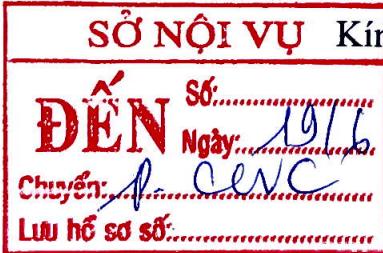 SỞ NỘI VỤ Kín
ĐẾN
Số:
Ngày: 19/6
Chuyển: P. CCVC
Lưu hồ sơ số: